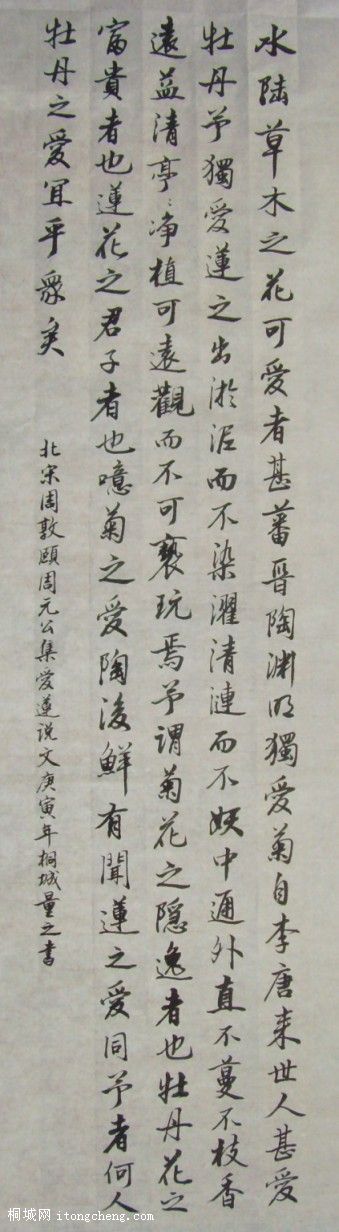 水陆草木之花可爱者甚蕃晋陶渊明独爱菊自李唐来世人甚爱
牡丹予獨愛蓮之出淤泥而不染濯清漣而不妖中通外直不蔓不枝香
遠益清亭亭净植可遠觀而不可褻玩焉予謂菊花之隱逸者也牡丹花之
富貴者也蓮花之君子者也噫菊之愛陶後鮮有聞蓮之愛同予者何人
牡丹之愛宜乎眾矣
北宋周敦頤周元公集愛蓮说文庚寅年桐城量之書
桐城网 itongcheng.com